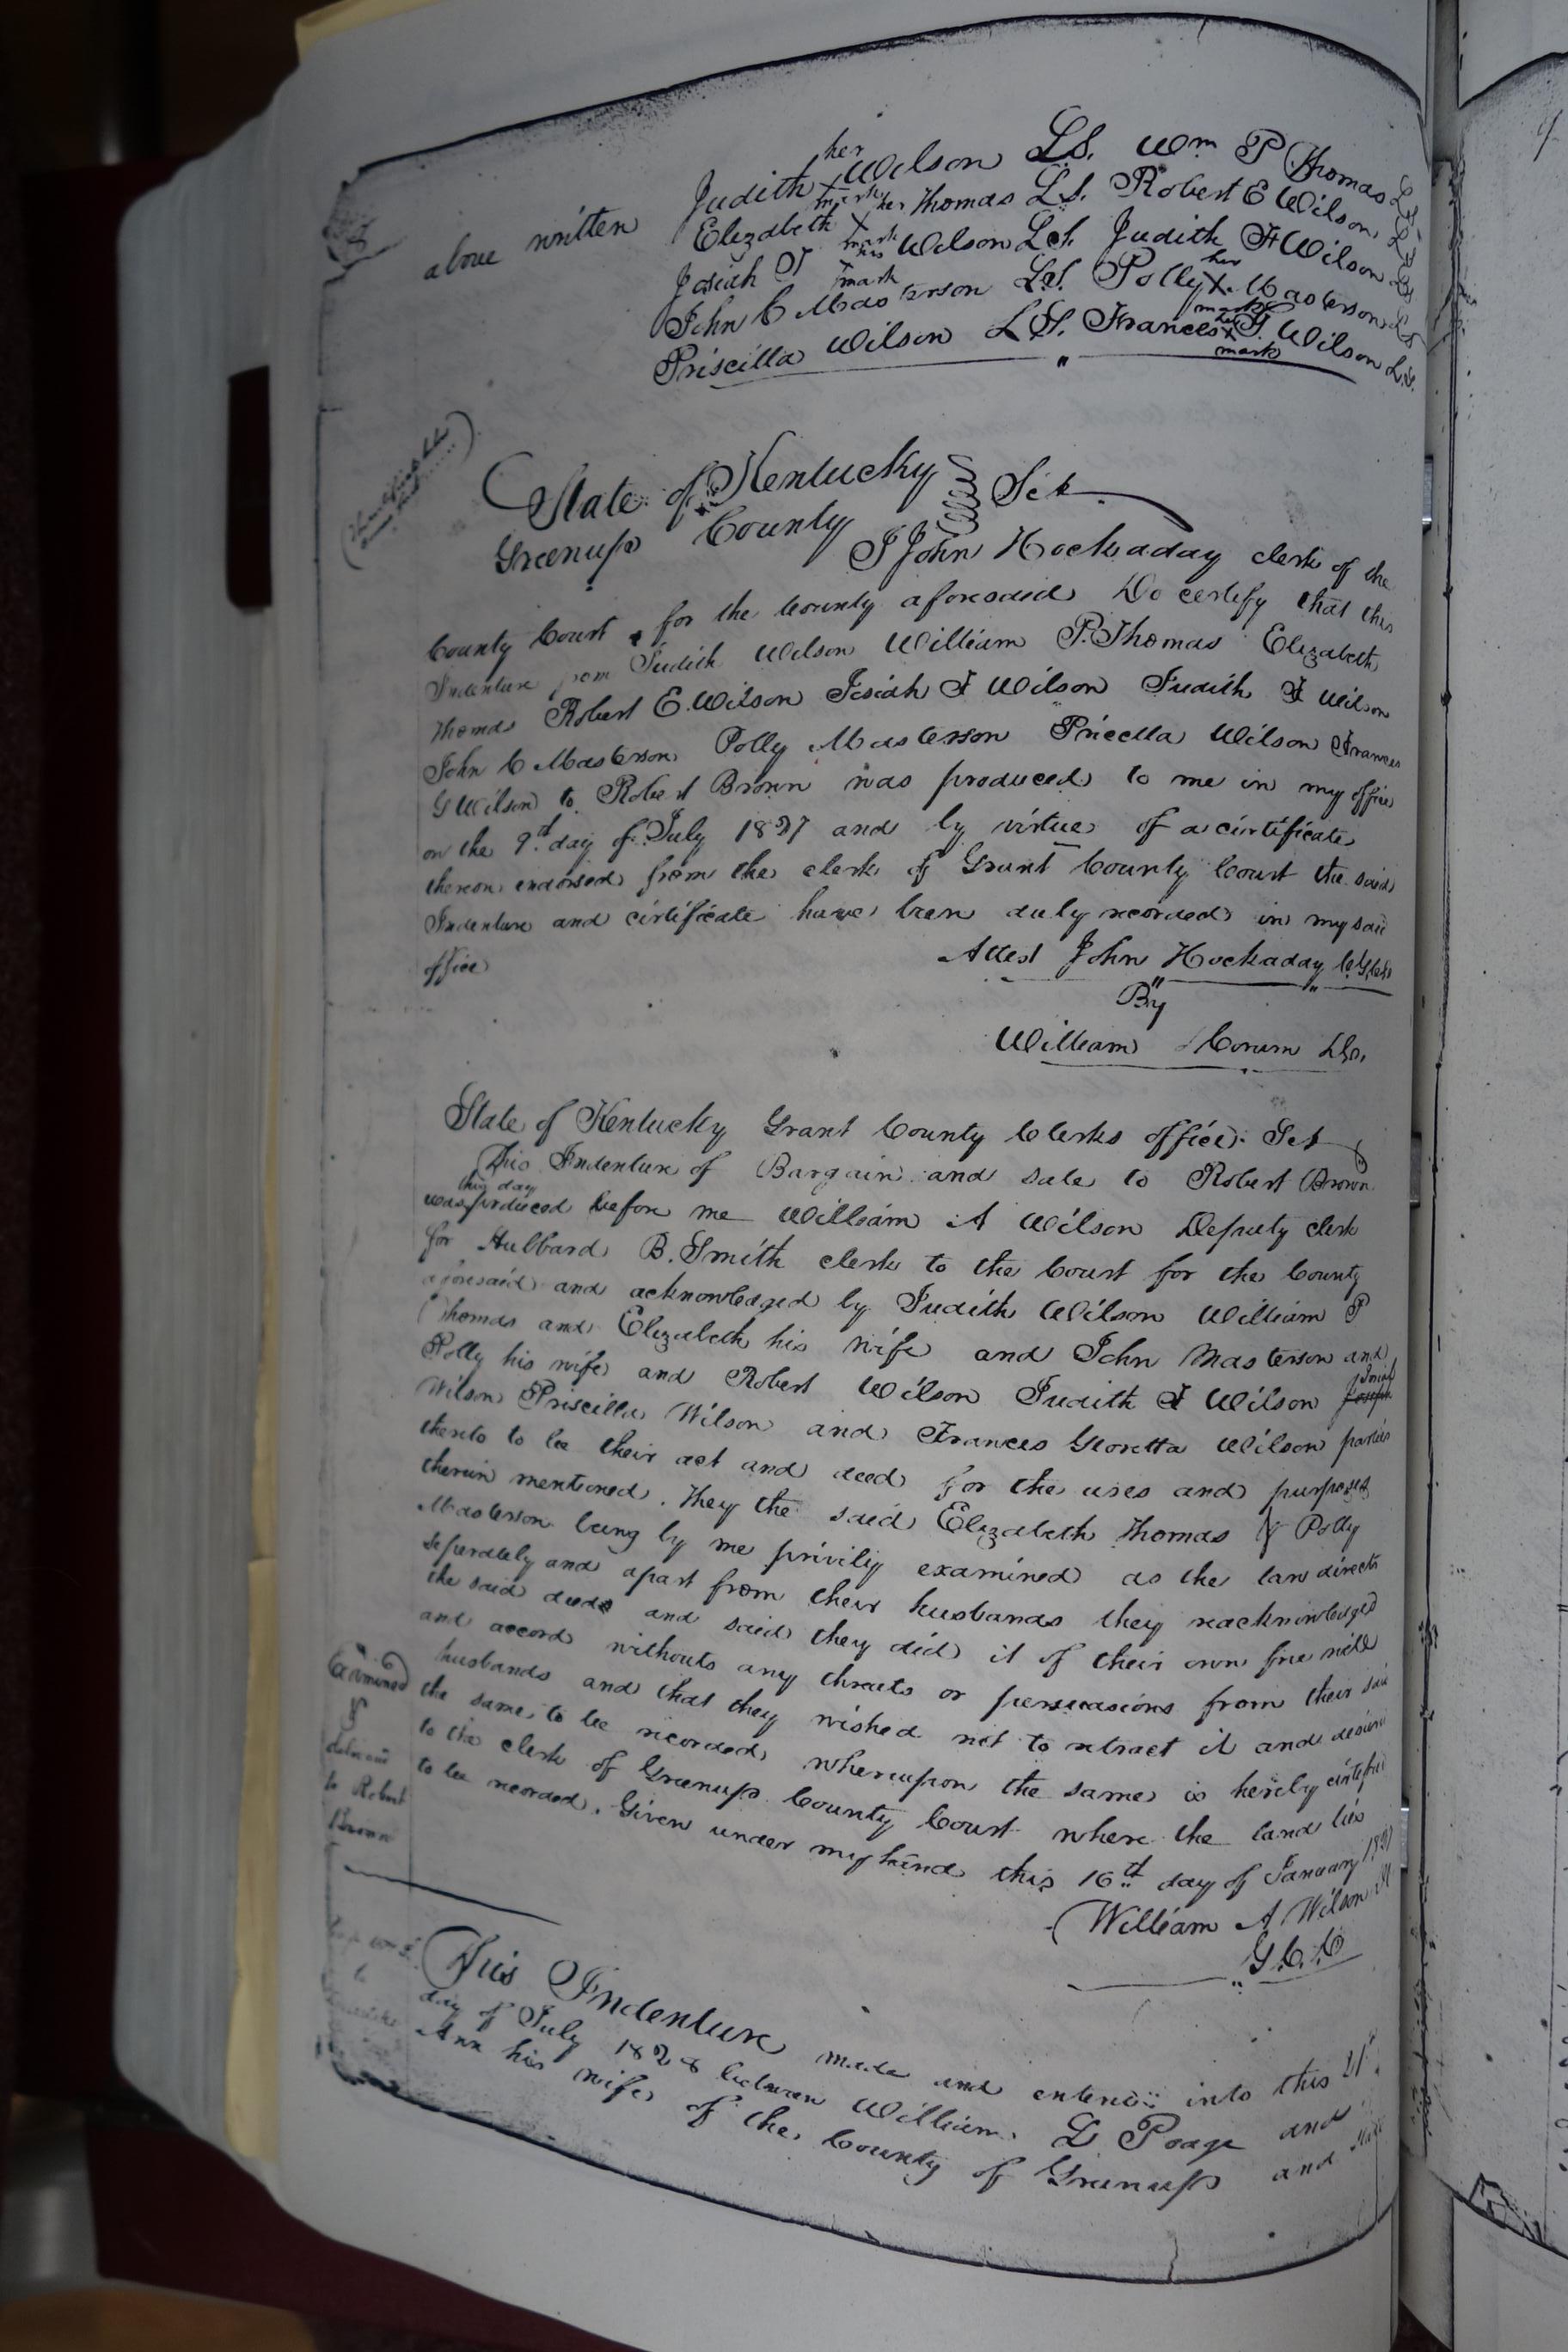 above written
Judith her x mark Wilson L.S. Wm P Thomas L.S.
Elizabeth her x mark Thomas L.S. Robert E Wilson L.S.
Josiah T his x mark Wilson L.S. Judith F Wilson L.S.
John C Masterson L.S. Polly her x mark Masterson L.S.
Priscilla Wilson L.S. Frances her x mark G. Wilson L.S.
State of Kentucky
Greenup County Sct
I John Hockaday clerk of the
County Court for the County aforesaid Do certify that this
Indenture from Judith Wilson William P. Thomas Elizabeth
Thomas Robert E. Wilson Josiah F Wilson Judith F Wilson
John C Masterson Polly Masterson Pricella Wilson Frances
G Wilson to Robert Brown was produced to me in my office
on the 9th day of July 1827 and by virtue of a certificate
thereon endorsed from the clerk of Grant County Court the said
Indenture and certificate have been duly recorded in my said
office
Attest John Hockaday
By
William Corum
State of Kentucky Grant County Clerks office Sct
This Indenture of Bargain and sale to Robert Brown
was this day produced before me William A Wilson Deputy clerk
for Hubbard B. Smith clerk to the Court for the County
aforesaid and acknowledged by Judith Wilson William P
Thomas and Elizabeth his wife and John Masterson and
Polly his wife and Robert Wilson Judith F Wilson Josiah
Wilson Priscilla Wilson and Frances Georetta Wilson parties
thereto to be their act and deed for the uses and purposes
therein mentioned. They the said Elizabeth Thomas & Polly
Masterson being by me privily examined as the law directs
seperately and apart from their husbands they reacknowledged
the said deed and said they did it of their own free will
and accord without any threats or persuasions from their said
husbands and that they wished not to retract it and desired
the same to be recorded whereupon the same is hereby certified
to the clerk of Greenup County Court where the land lies
to be recorded. Given under my hand this 16th day of January 1827
William A Wilson
G.C.C
Examined
&
delivered
to Robert
Brown
This Indenture made and entered into this
day of July 1828 between William L Poage and
Ann his wife of the County of Greenup and